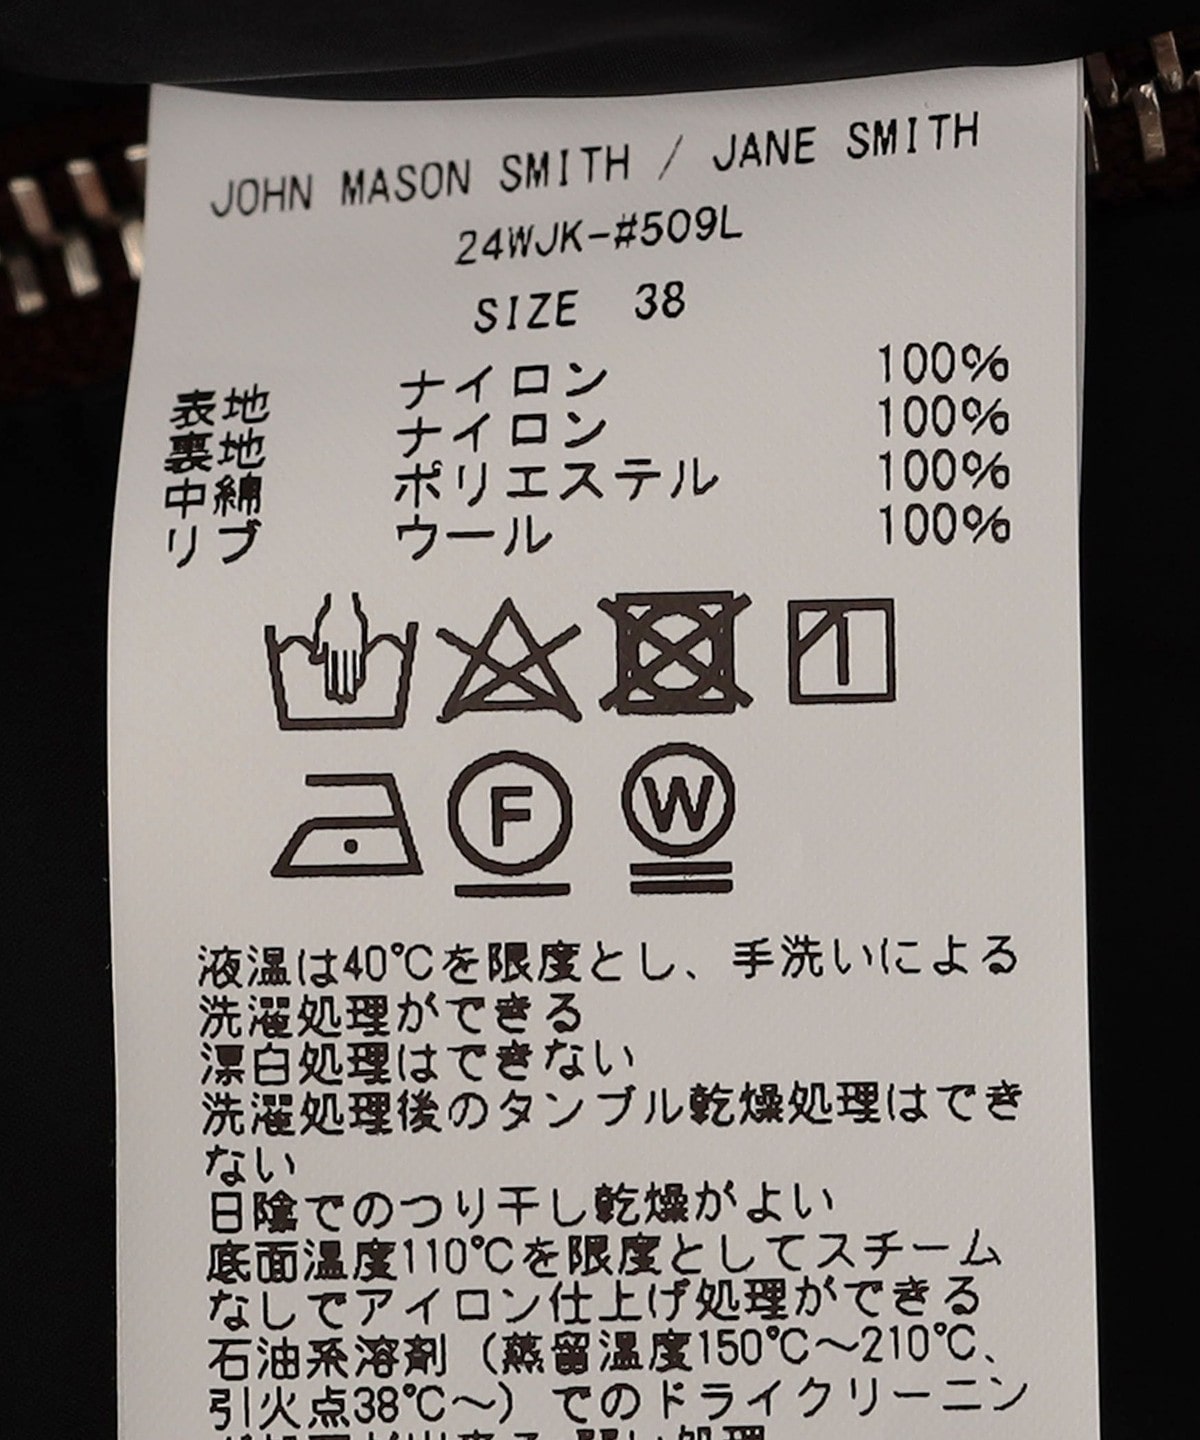 JOHN MASON SMITH / JANE SMITH
24WJK-#509L
SIZE 38
表地 ナイロン 100%
裏地 ナイロン 100%
中綿 ポリエステル 100%
リブ ウール 100%
F W
液温は40℃を限度とし、手洗いによる
洗濯処理ができる
漂白処理はできない
洗濯処理後のタンブル乾燥処理はでき
ない
日陰でのつり干し乾燥がよい
底面温度110℃を限度としてスチーム
なしでアイロン仕上げ処理ができる
石油系溶剤（蒸留温度150℃～210℃、
引火点38℃～）でのドライクリーニン